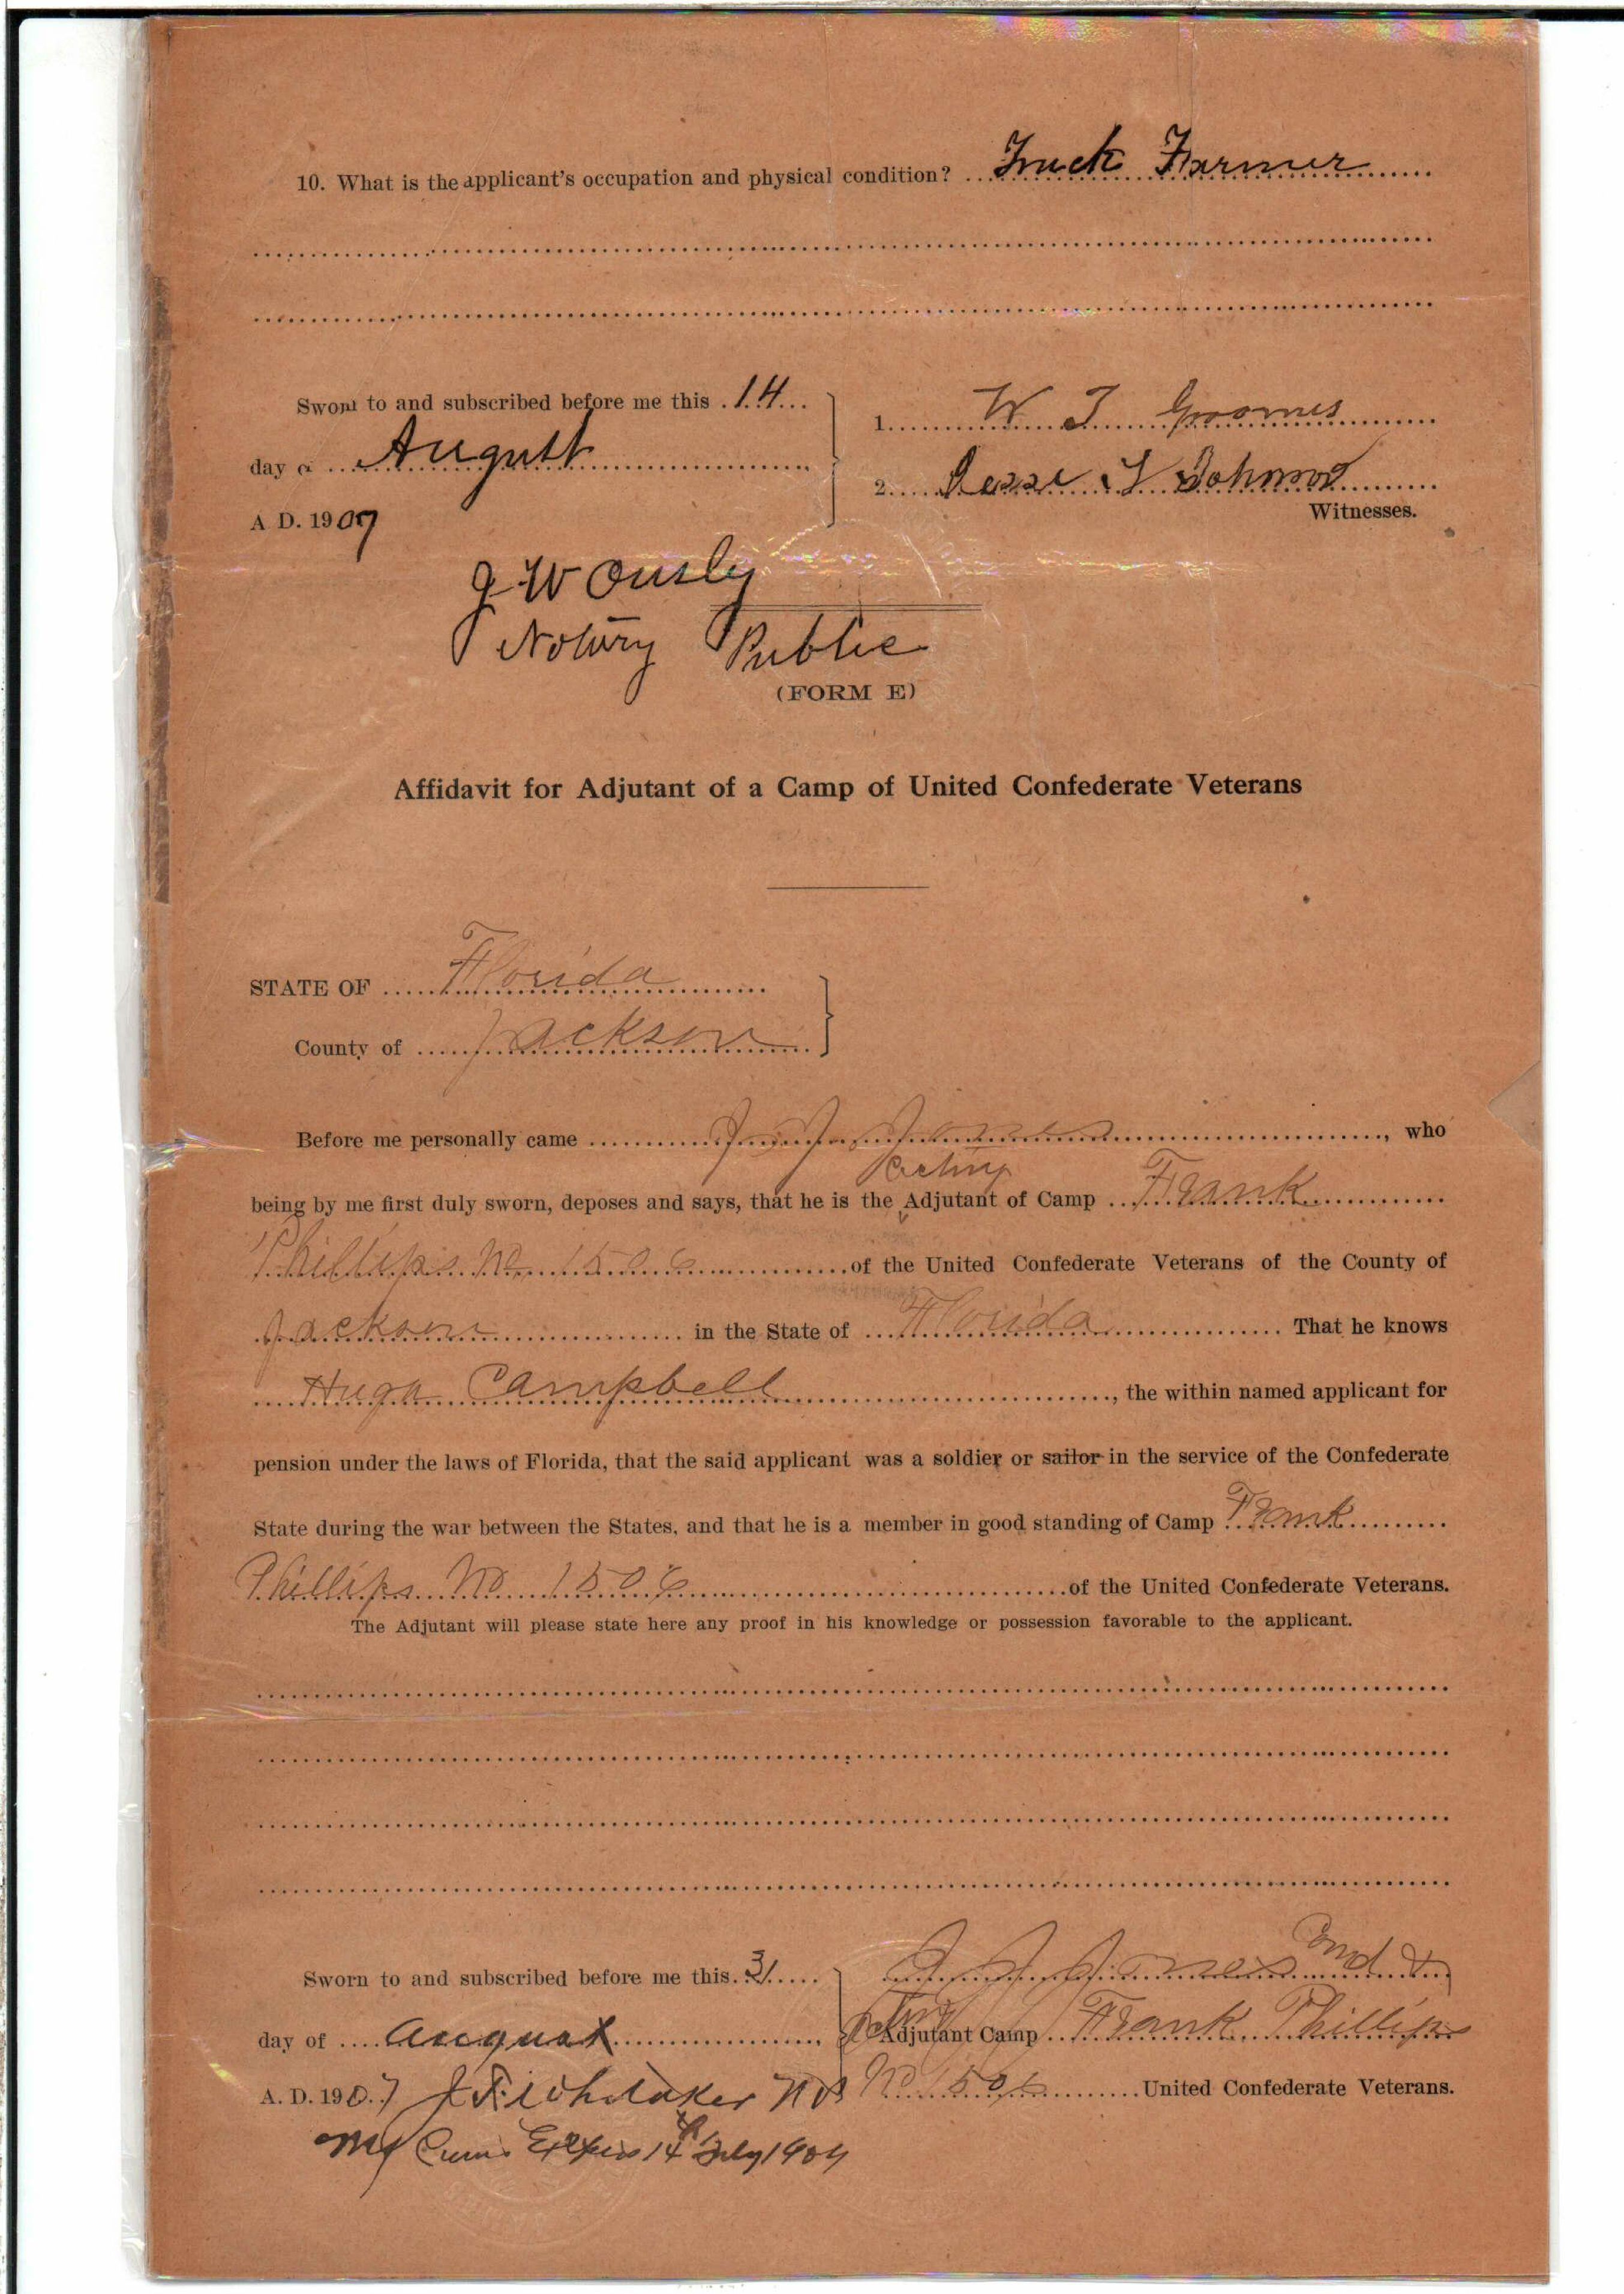 10. What is the applicant's occupation and physical condition? Truck Farmer
Sworn to and subscribed before me this 14
day o August
A D. 1907
1. W T Groomes
2. Jesse T Johnson
Witnesses.
J W Ously
Notary Public
(FORM E)
Affidavit for Adjutant of a Camp of United Confederate Veterans
STATE OF Florida
County of Jackson
Before me personally came J. J. James, who
Acting
being by me first duly sworn, deposes and says, that he is the Adjutant of Camp Frank
Phillips No 1506 of the United Confederate Veterans of the County of
Jackson in the State of Florida That he knows
Hugh Campbell, the within named applicant for
pension under the laws of Florida, that the said applicant was a soldier or sailor in the service of the Confederate
State during the war between the States, and that he is a member in good standing of Camp Frank
Phillips No 1506 of the United Confederate Veterans.
The Adjutant will please state here any proof in his knowledge or possession favorable to the applicant.
Sworn to and subscribed before me this 31
day of August
A. D. 1907 Whitaker N P
J J James Comd &
Acting Adjutant Camp Frank Phillips
No 1506 United Confederate Veterans.
My Expires 14th July 190